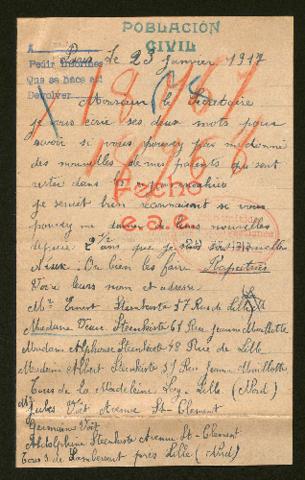 POBLACIÓN
CIVIL
A
Pedir informes
Que se hace así
Devolver
Paris le 23 janvier 1917
18767
Monsieur le Secrétaire
je vous écrie ses deux mots pour
savoir si vous pouvez pas me donné
des nouvelles de mes parents qui sont
restée dans les
je serait bien reconnaisant si vous
pouvez me donner de leurs nouvelles
depuis 2 1/2 ans que je suis sans nouvelles
Ou bien les faire Rapatrier
Voici leurs nom et adresse
Mr Ernest Steenkiste 57 Rue de Lille
Madame Veuve Steenkiste 61 Rue Jeanne Maillotte
Madame Alphonse Steenkiste 48 Rue de Lille
Madame Albert Steenkiste 37 Rue Jeanne Maillotte
Tous de La Madeleine Lez-Lille (Nord)
Mr Jules Voët Avenue St-Clement
Germaine Voët
Adolphine Steenkiste Avenue St-Clement
Tous 3 de Lambersart près Lille (Nord)